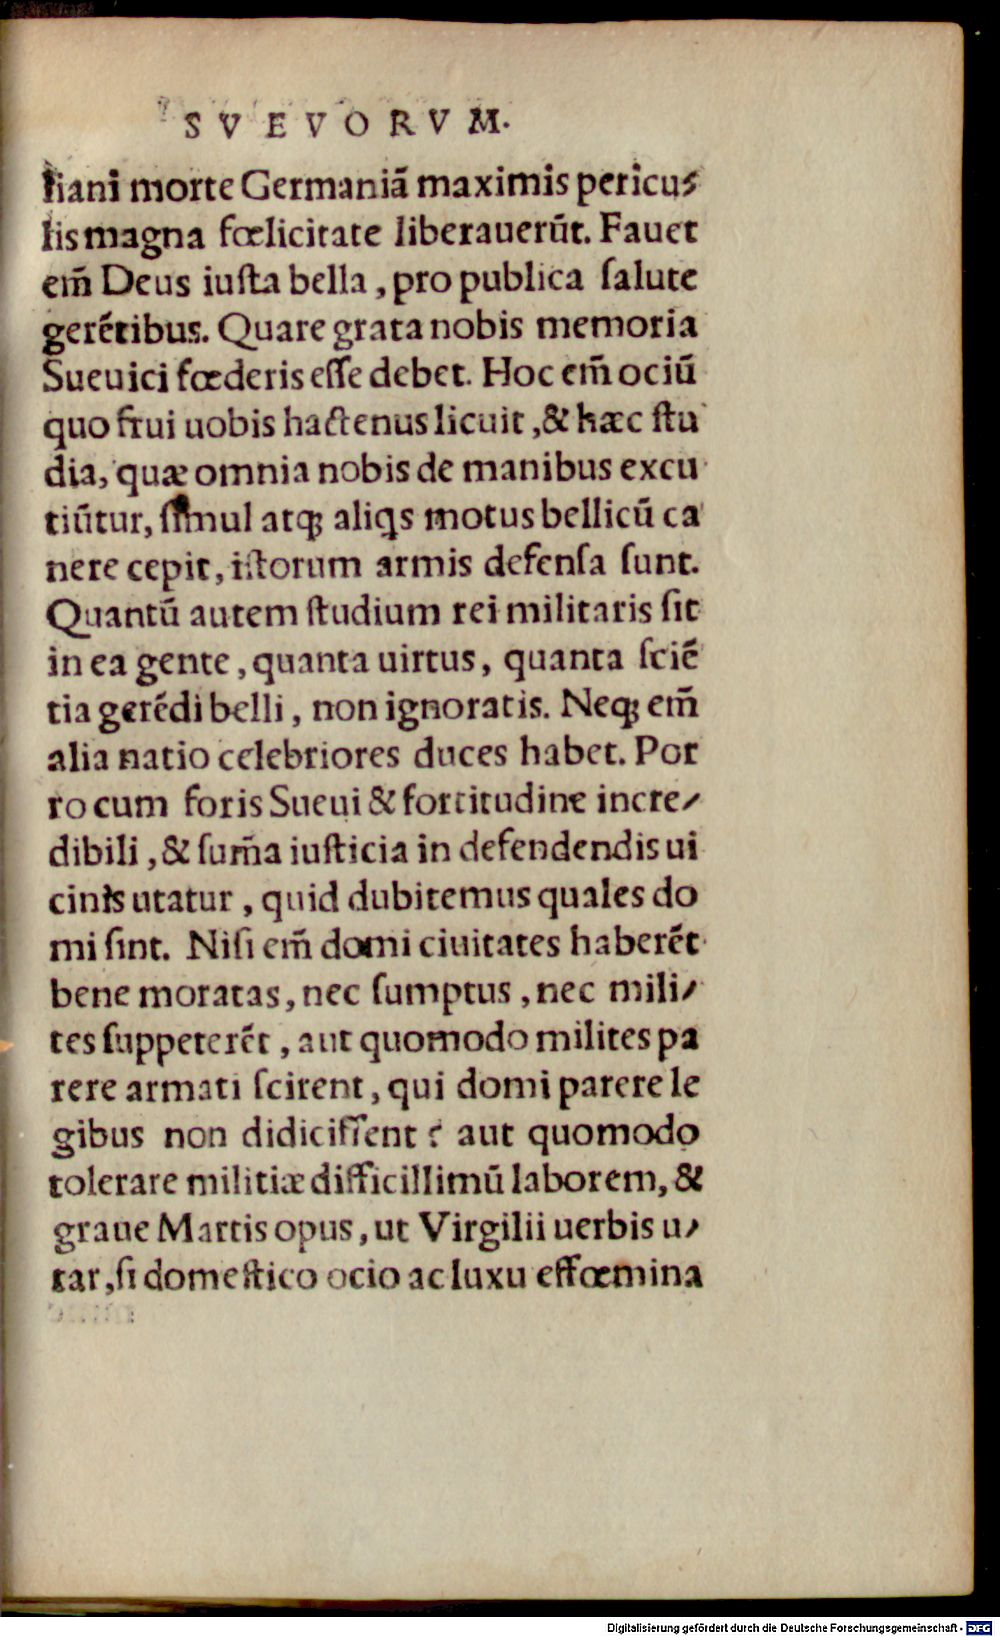 SVEVORVM.
liani morte Germaniã maximis pericu⸗
lis magna fœlicitate liberauerũt. Fauet
em̃ Deus iusta bella, pro publica salute
gerẽtibus. Quare grata nobis memoria
Sueuici fœderis esse debet. Hoc em̃ ociũ
quo frui uobis hactenus licuit, & hæc stu
dia, quæ omnia nobis de manibus excu
tiũtur, simul atqꝫ aliqs motus bellicũ ca
nere cepit, istorum armis defensa sunt.
Quantũ autem studium rei militaris sit
in ea gente, quanta uirtus, quanta sciẽ
tia gerẽdi belli, non ignoratis. Neqꝫ em̃
alia natio celebriores duces habet. Por
ro cum foris Sueui & fortitudine incre⸗
dibili, & sum̃a iusticia in defendendis ui
cinis utatur, quid dubitemus quales do
mi sint. Nisi em̃ domi ciuitates haberẽt
bene moratas, nec sumptus, nec mili⸗
tes suppeterẽt, aut quomodo milites pa
rere armati scirent, qui domi parere le
gibus non didicissent? aut quomodo
tolerare militiæ difficillimũ laborem, &
graue Martis opus, ut Virgilii uerbis u⸗
tar, si domestico ocio ac luxu effœmina
Digitalisierung gefördert durch die Deutsche Forschungsgemeinschaft - DFG